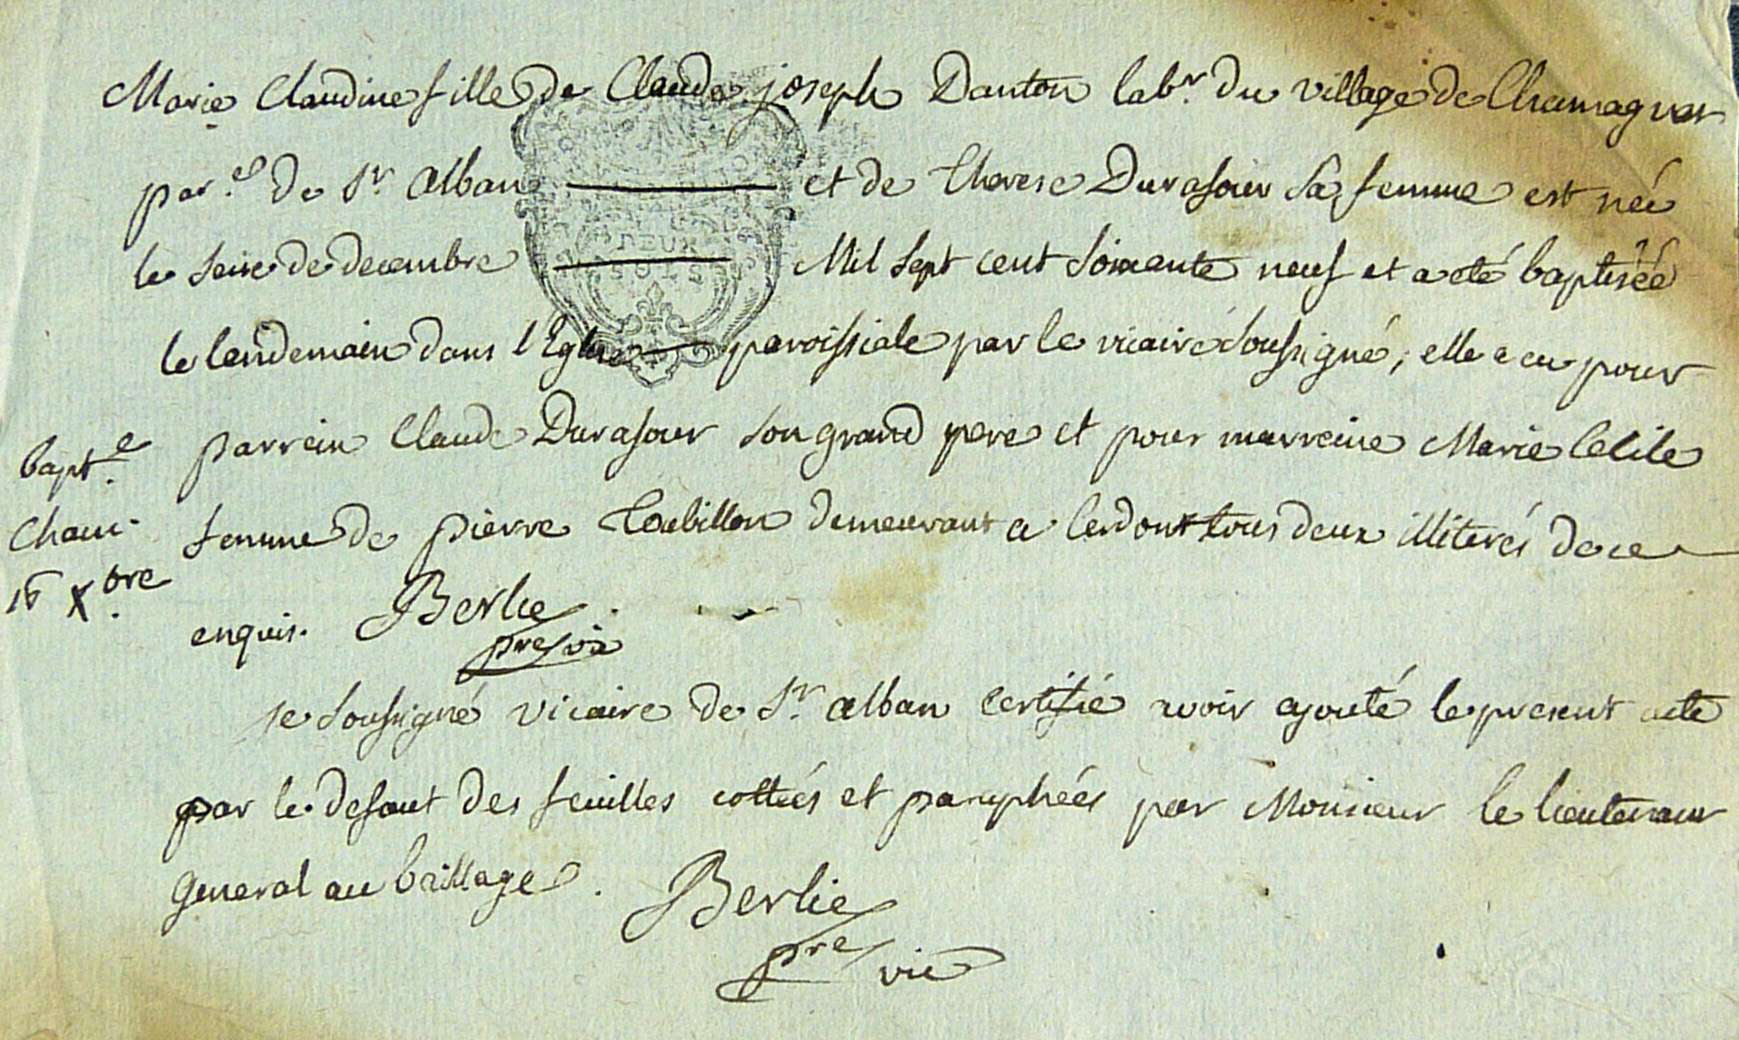 Marie Claudine fille de Claude joseph Danton labr. du village de Chamagner
par.e de St. alban et de Therese Durasour sa femme est née
le seise de decembre Mil sept cent soixante neuf et a eté baptisée
le lendemain dans l'Eglise paroissiale par le vicaire soussigné, elle a eu pour
parrein Claude Durasour son grand pere et pour marreine Marie Cecile
femme de pierre Toubillon demeurant a Cerdont tous deux illiterés de ce
enquis. Berlie
pre vic
bapt.e
Cham.
16 Xbre
DEUX
SOLS
je soussigné vicaire de St. alban certifie avoir ajouté le present acte
par le defaut des feuilles cottées et paraphées par Monsieur le lieutenant
General au baillage.
Berlie
pre vic